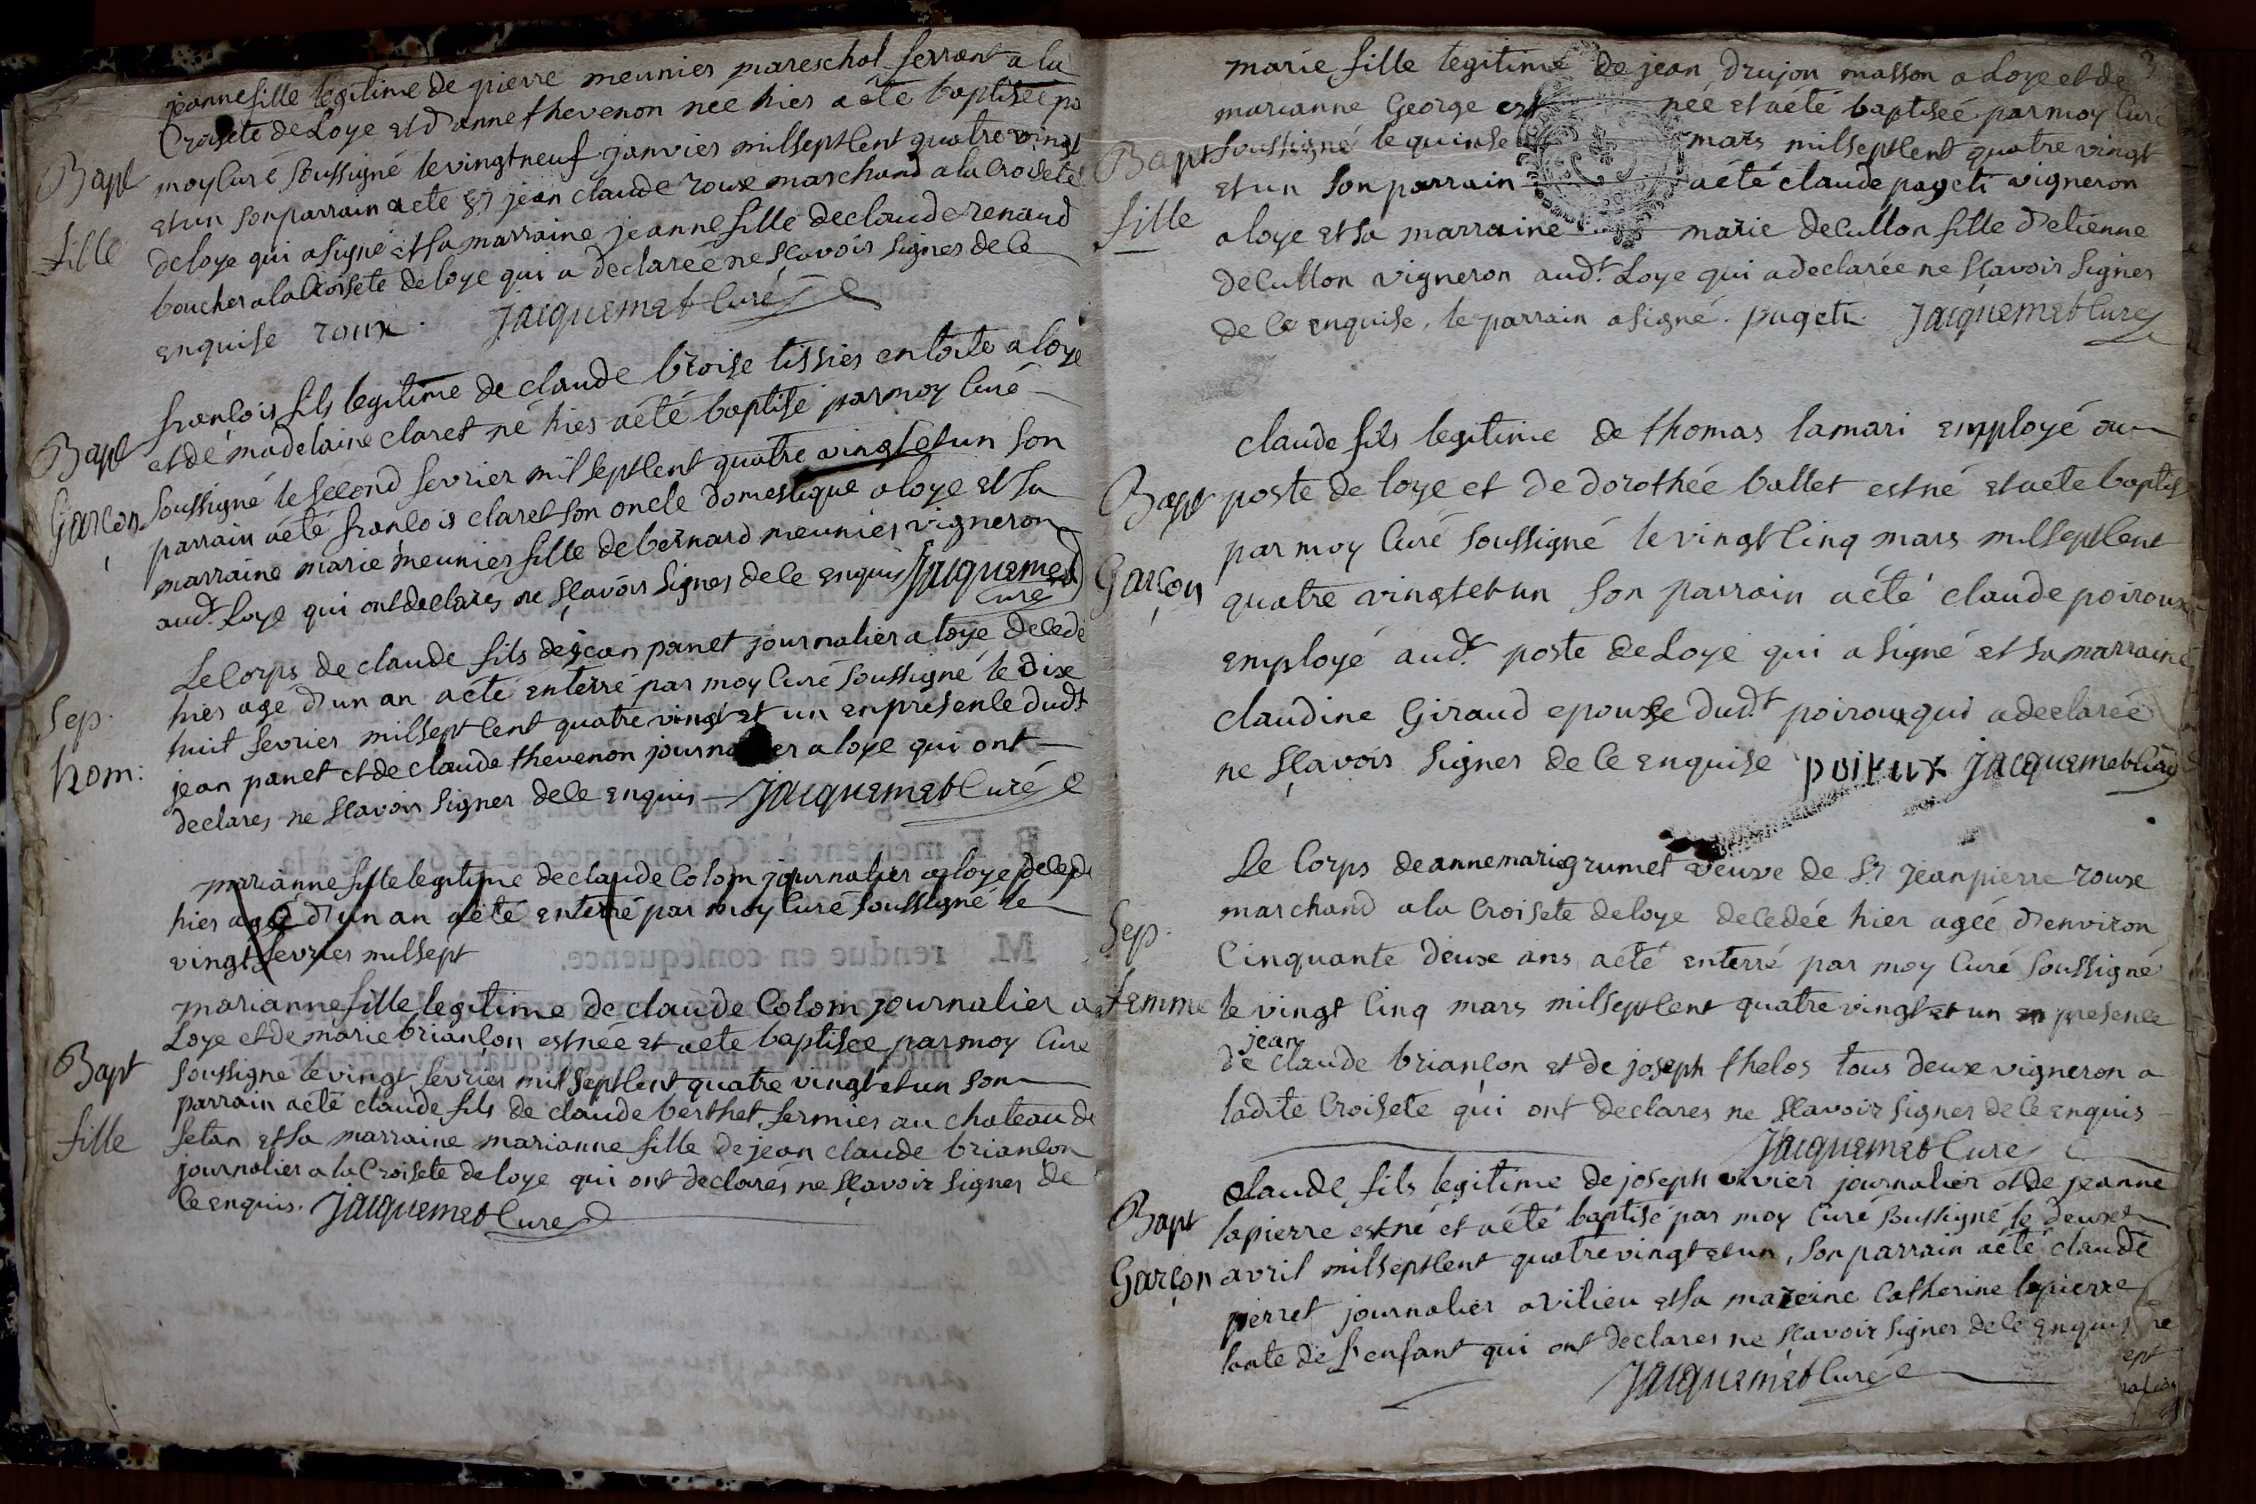 jeanne fille legitime de pierre meunier mareschal ferrant a la
Croisete de Loye et d'anne thevenon née hier a été baptisée pa
Bapt moy Curé soussigné le vingt neuf janvier mil sept Cent quatre vingt
et un son parrain a ete Sr jean claude roux marchand a la Croisete
fille de loye qui a signé et sa marraine jeanne fille de claude renaud
boucher a la Croisete de loye qui a declareé ne sçavoir signer de Ce
enquise roux. Jacquemet Curé
françois fils legitime de claude broise tissier en toile a loye
Bapt et de madelaine claret né hier a été baptisé par moy Curé
soussigné le second fevrier mil sept Cent quatre vingt et un son
Garçon parrain a été françois claret son oncle domestique a loye et sa
marraine marie meunier fille de bernard meunier vigneron
audt. Loye qui ont declarés ne sçavoir signer de Ce enquis Jacquemet
Curé
Le Corps de claude fils de jean panet journalier a loye decedé
hier agé d'un an a été enterré par moy Curé soussigné le dix
Sep. huit fevrier mil sept Cent quatre vingt et un en presence dudt
hom: jean panet et de claude thevenon journalier a loye qui ont
declares ne sçavoir signer de Ce enquis Jacquemet Curé
marianne fille legitime de claude Colom journalier a loye decedé
hier agé d'un an a été enterré par moy Curé soussigné le
vingt fevrier mil sept
marianne fille legitime de claude Colom journalier a
Loye et de marie briançon est née et a ete baptisée par moy Curé
Bapt soussigné le vingt fevrier mil sept Cent quatre vingt et un son
parrain a été claude fils de claude berthet fermier au chateau de
fille setan et sa marraine marianne fille de jean claude briançon
journalier a la Croisete de loye qui ont declarés ne sçavoir signer de
Ce enquis. Jacquemet Curé
marie fille legitime de jean drujon masson a Loye et de
marianne George est née et a été baptiseé par moy Curé
Bapt soussigné le quinse mars mil sept Cent quatre vingt
et un son parrain a été claude pageti vigneron
fille a loye et sa marraine marie decullon fille d'etienne
decullon vigneron audt. Loye qui a declarée ne sçavoir signer
de Ce enquise, le parrain a signé. pageti. Jacquemet Curé
claude fils legitime de thomas lamari employé au
Bapt poste de loye et de dorothée ballet est né et a ete baptisé
par moy Curé soussigné le vingt Cinq mars mil sept Cent
Garçon quatre vingt et un son parrain a été claude poiroux
employé audt. poste de Loye qui a signé et sa marraine
claudine Giraud epouse dudt. poiroux qui a declareé
ne sçavoir signer de Ce enquise poirux Jacquemet Curé
Le Corps de anne marie grumet veuve de Sr jean pierre roux
marchand a la Croisete de loye decedée hier agéé d'environ
Sep. Cinquante deux ans a été enterré par moy Curé soussigné
femme le vingt Cinq mars mil sept Cent quatre vingt et un en presence
jean
de claude briançon et de joseph thelos tous deux vigneron a
ladite Croisete qui ont declares ne sçavoir signer de Ce enquis
Jacquemet Curé
claude fils legitime de joseph vivier journalier et de jeanne
Bapt lapierre est né et a été baptisé par moy Curé soussigné le deux
Garçon avril mil sept Cent quatre vingt et un, son parrain a été claude
pierret journalier a vilieu et sa mareine Catherine lapierre
tante de l'enfant qui ont declares ne sçavoir signer de Ce enquis
Jacquemet Curé